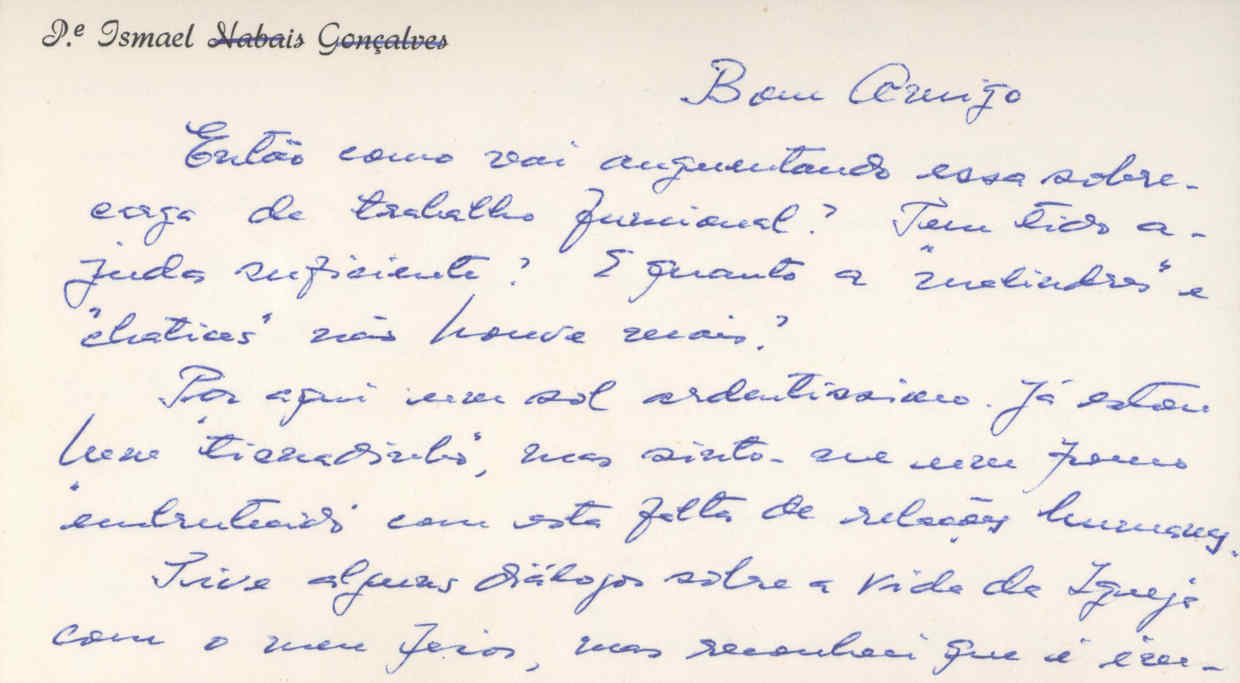 P.e Ismael Nabais Gonçalves
Bom Amigo
Então como vai augmentando essa sobre-
carga de trabalho funcional? Tem tido a-
juda suficiente? E quanto a "melindres" e
"chatices" não houve mais?
Por aqui um sol ardentissimo. Já estou
bem "tisnadinho", mas sinto-me um pouco
"embrutecido" com esta falta de relações humanas.
Tive alguns diálogos sobre a vida da Igreja
com o meu, mas reconheci que é